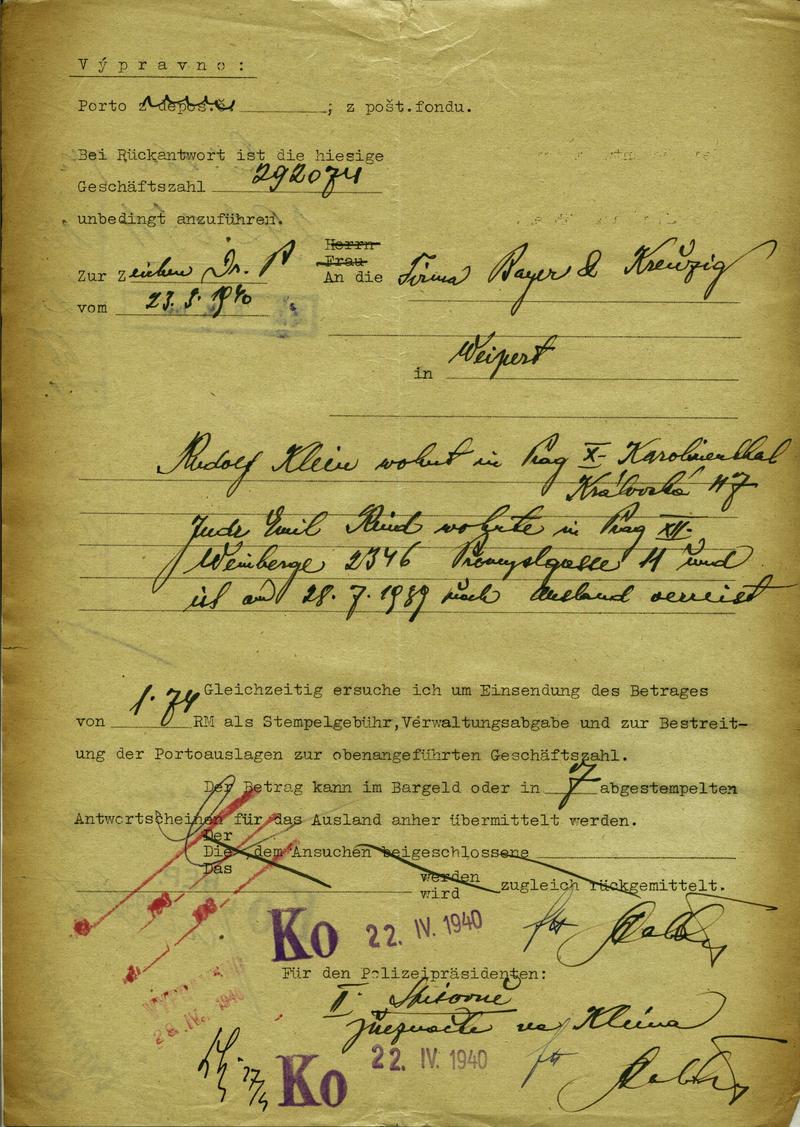 Výpravno:
Porto z depos.č ; z pošt.fondu.
Bei Rückantwort ist die hiesige
Geschäftszahl 292074
unbedingt anzuführen.
Herrn
Frau
Zur Zeichen Dr. P An die Firma Bayer & Kreuzig
vom 23. 3. 1940
in Weipert
Rudolf Klein wohnt in Prag X- Karolinenthal
Královská 47
Judr Emil wohnte in Prag XII-
Weinberge 2346 11 und
ist am 28. 7. 1939 nach Ausland verreist
Gleichzeitig ersuche ich um Einsendung des Betrages
von 1.74 RM als Stempelgebühr,Verwaltungsabgabe und zur Bestreit-
ung der Portoauslagen zur obenangeführten Geschäftszahl.
Der Betrag kann im Bargeld oder in 7 abgestempelten
Antwortscheinen für das Ausland anher übermittelt werden.
Der
Die ,dem Ansuchen beigeschlossene
Das
werden
wird zugleich rückgemittelt.
Ko 22. IV. 1940
Für den Polizeipräsidenten:
II. 
na Kleina
28. IV. 1940
Ko 22. IV. 1940
27/4